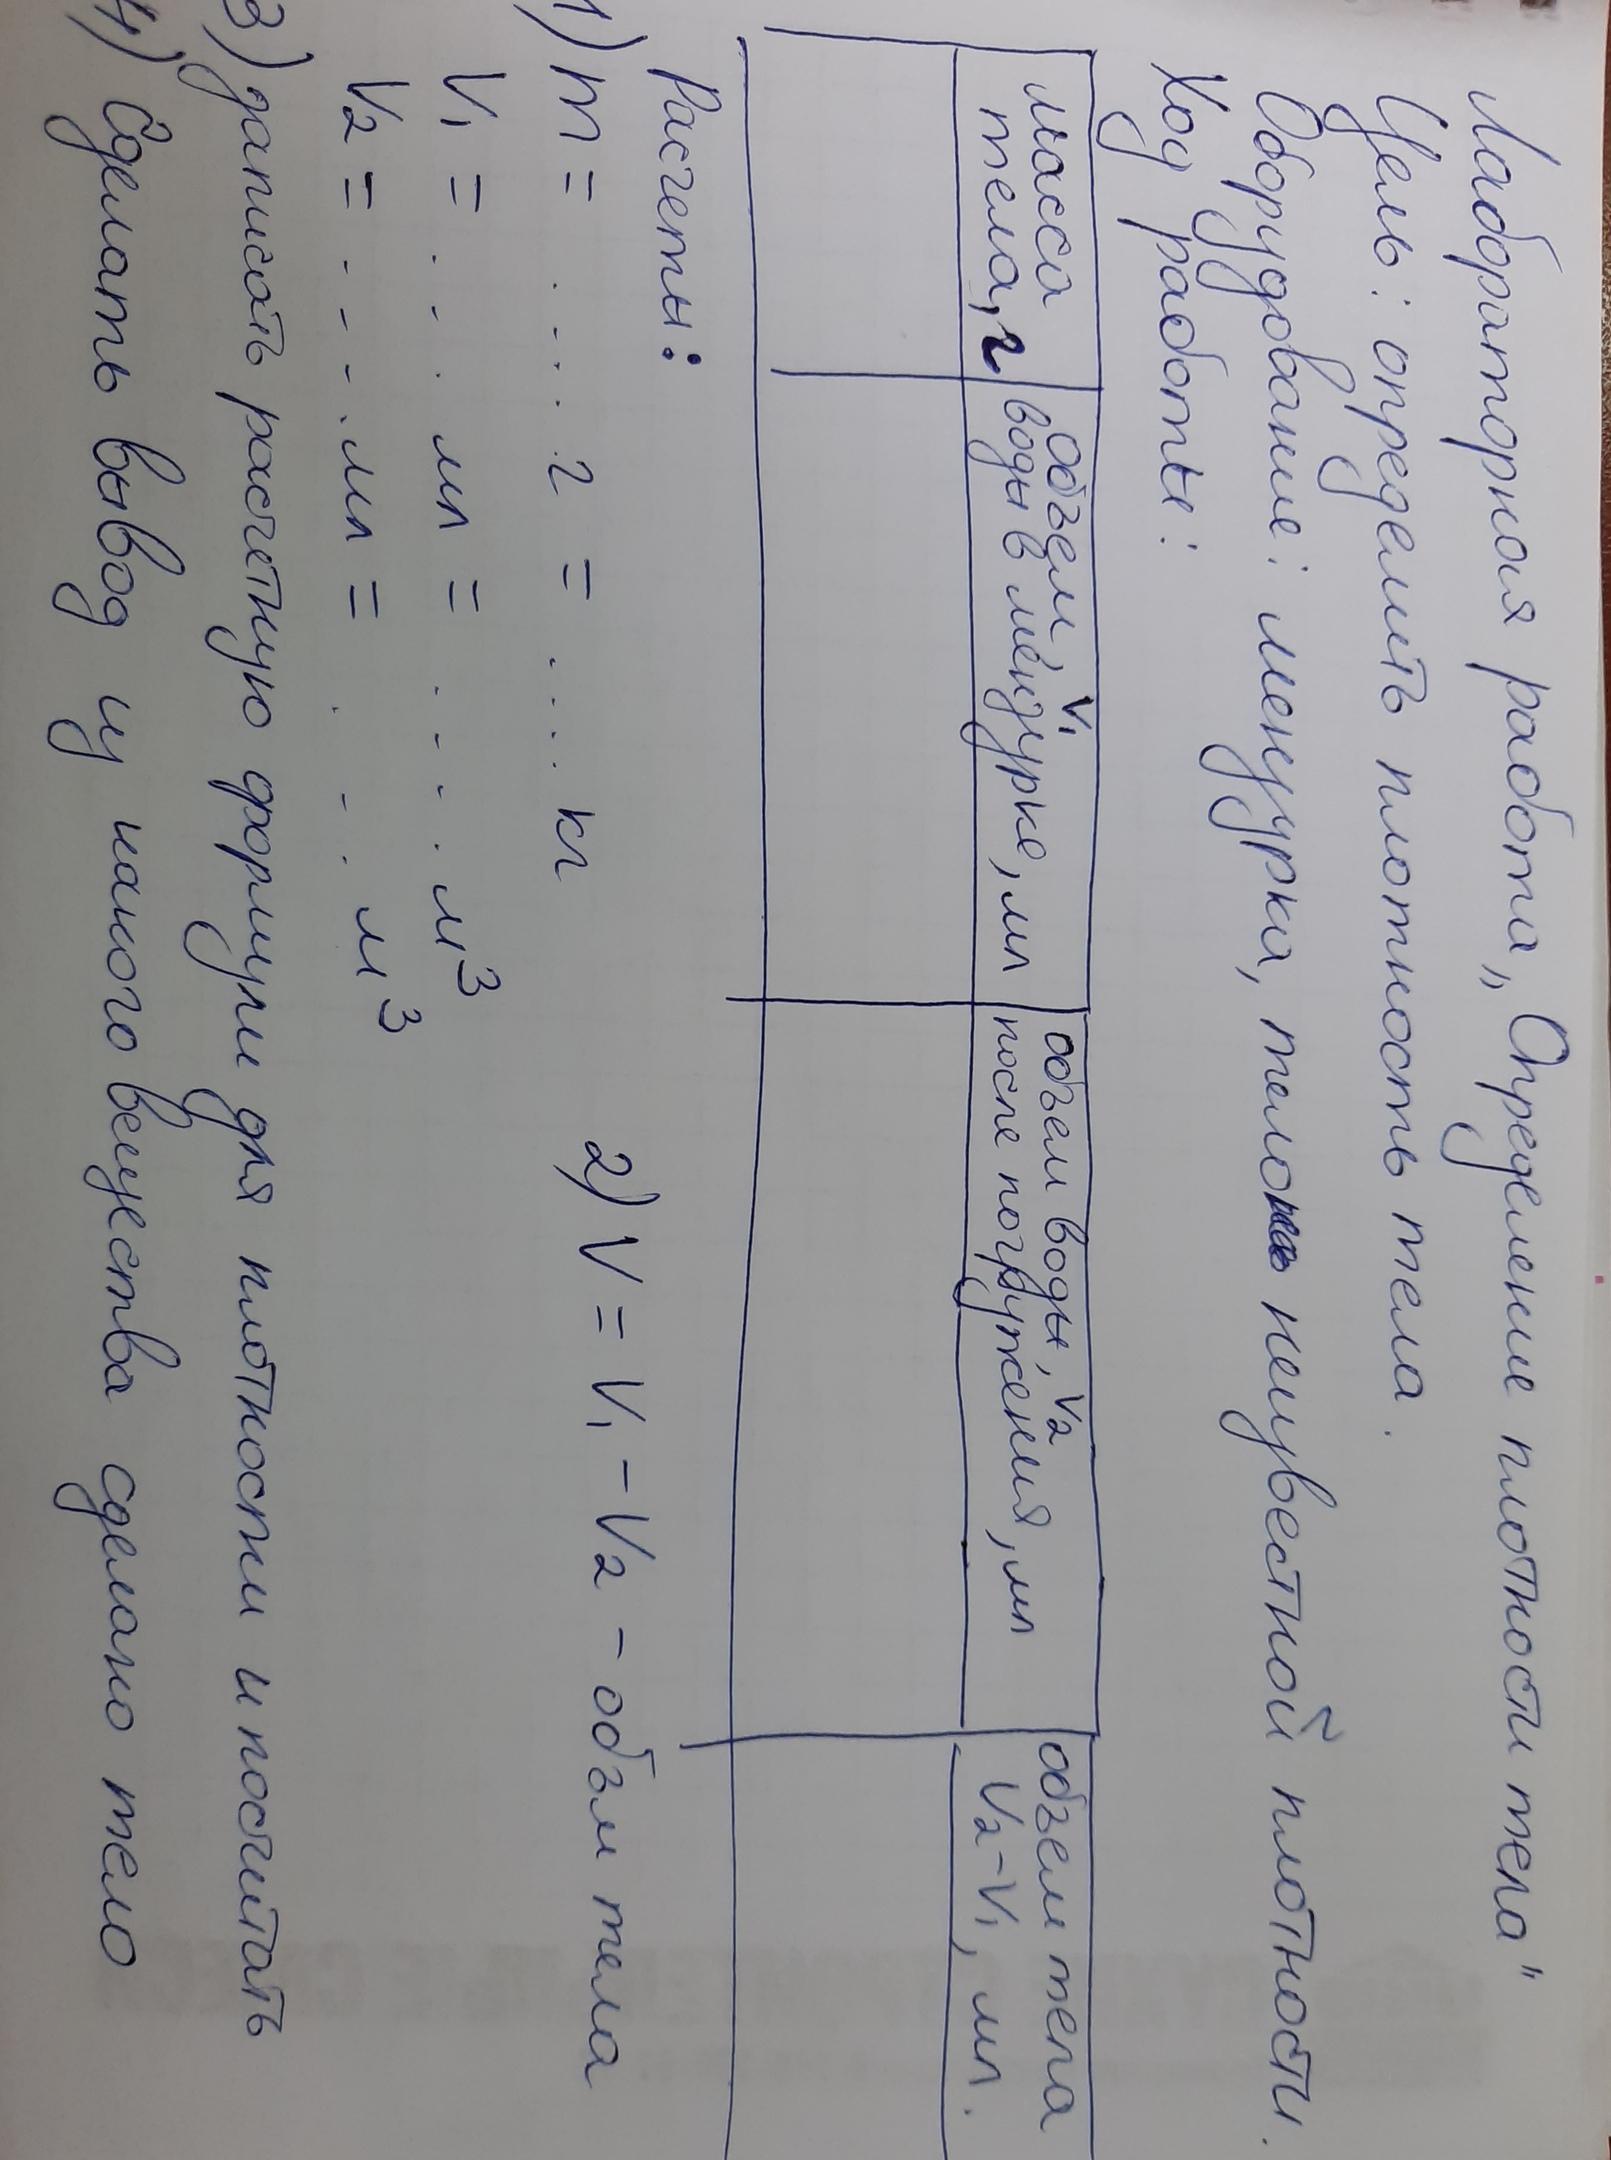 Лабораторная работа „Определение плотности тела"
Цель: определить плотность тела.
Оборудование: мензурка, тело неизвестной плотности.
Ход работы:
масса
тела, г
объем, V₁
воды в мензурке, мл
объем воды, V₂
после погружения, мл
объем тела
V₂-V₁, мл.
Расчеты:
1) m = .... г = .... кг
2) V = V₁ - V₂ - объм тела
V₁ = ... мл = .... м³
V₂ = .... мл = ... м³
3) записать расчетную формулу для плотности и посчитать
4) Сделать вывод из какого вещества сделано тело